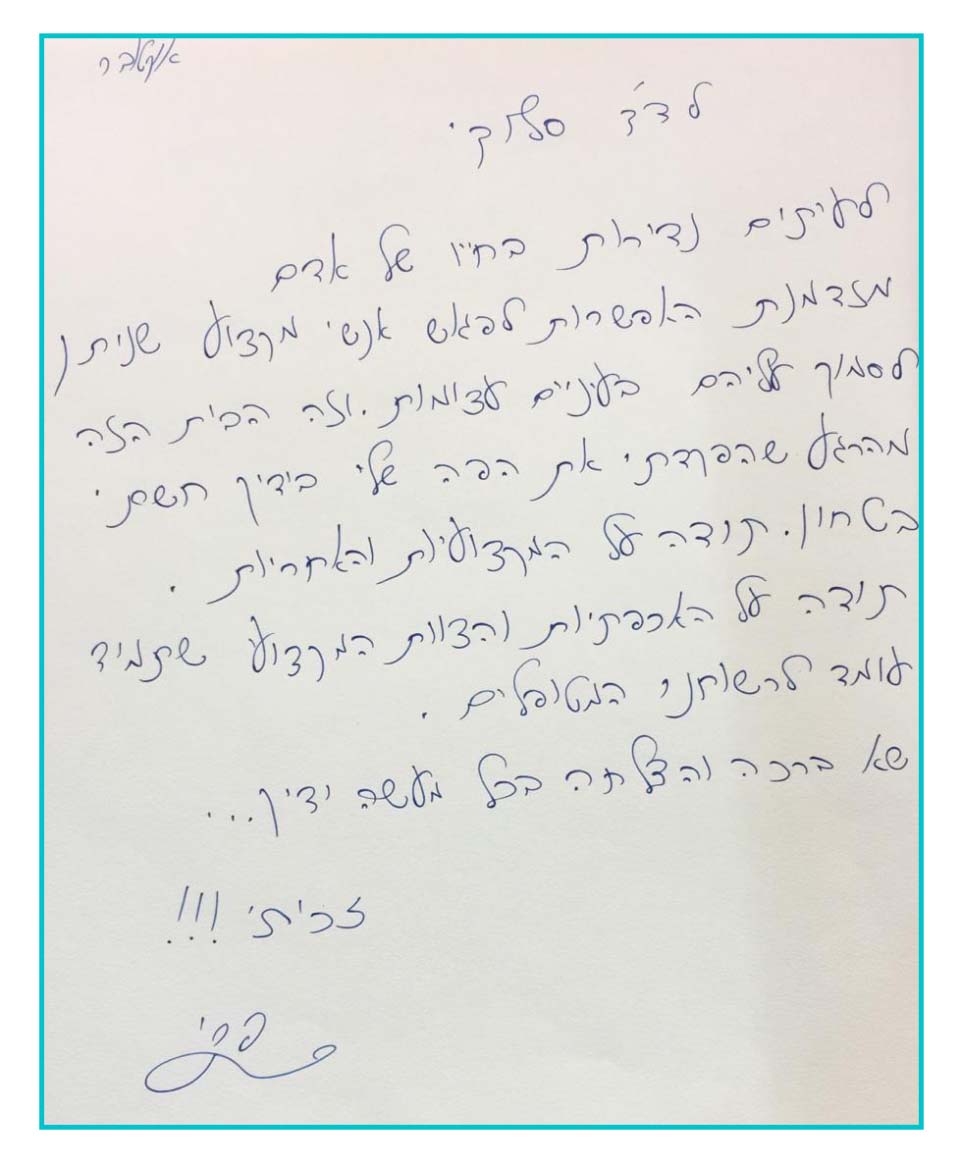 אוקטובר
לד"ר סלוקי
לעיתים נדירות בחייו של אדם
מזדמנת האפשרות לפגוש אנשי מקצוע שניתן
לסמוך עליהם בעיניים עצומות. וזה הבית הזה
מהרגע שהפקדתי את הפה שלי בידיך חשתי
בטחון. תודה על המקצועיות והאחריות.
תודה על האכפתיות והצוות המקצועי שתמיד
עומד לרשותנו המטופלים.
שא ברכה והצלחה בכל מעשה ידיך...
זכיתי !!!